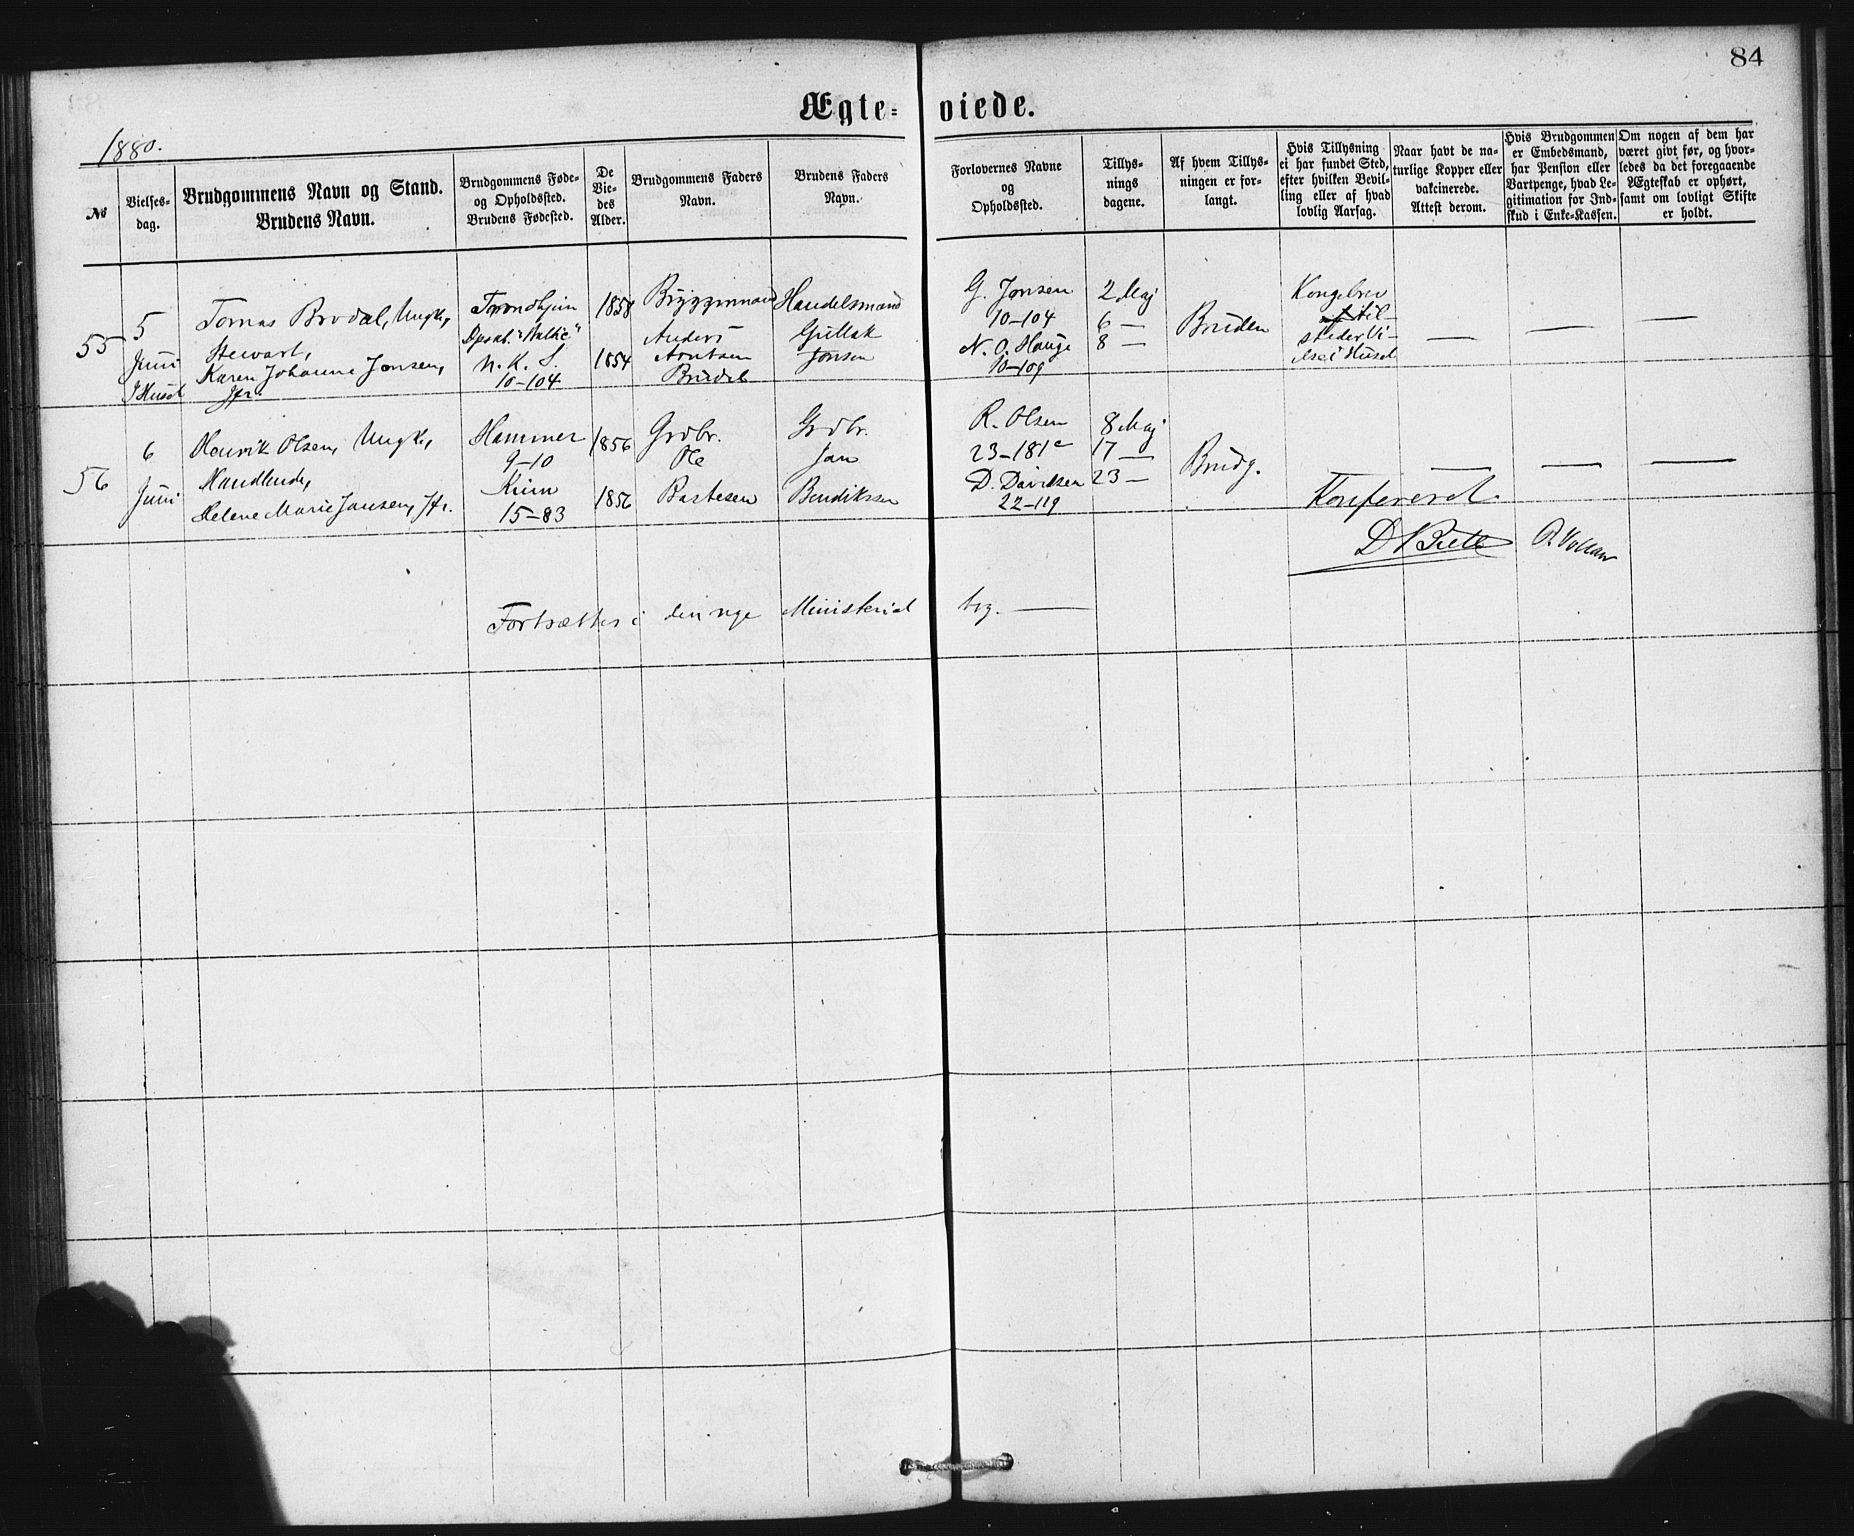 84
Ægte- viede.
1880.
No
Vielses-
dag.
Brudgommens Navn og Stand.
Brudens Navn.
Brudgommens Føde-
og Opholdssted.
Brudens Fødested.
De
Vie-
des
Alder.
Brudgommens Faders
Navn.
Brudens Faders
Navn.
Forlovernes Navne
og
Opholdssted.
Tillys-
nings
dagene.
Af hvem Tillys-
ningen er for-
langt.
Hvis Tillysning
ei har fundet Sted,
efter hvilken Bevil-
ling eller af hvad
lovlig Aarsag.
Naar havt de na-
turlige Kopper eller
vakcinerede.
Attest derom.
Hvis Brudgommen
er Embedsmand,
har Pension eller
Vartpenge, hvad Le-
gitimation for Ind-
skud i Enke-Kassen.
Om nogen af dem har
været givt før, og hvor-
ledes da det foregaaende
Ægteskab er ophørt,
samt om lovligt Skifte
er holdt.
55
5
Juni
I Huset
Tomas Brodal, Ungk,
Stewart,
Karen Johanne Jonsen,
Jfr.
Trondhjem
Dpsk.
N. K. S.
10-104
1858
1854
Anders
Arntsen
Brudal
Handelsmand
Gullak
Jonsen
G. Jonsen
10-104
N. O. Hauge
10-109
2 Maj
6 —
8 —
Bruden
Kongebrev
til-
steder Vi-
else i Huset
—
—
—
56
6
Juni
Henrik Olsen, Ungk,
Handlende,
Helene Marie Jansen, Jfr.
Hammer
9-10
Krim
15-83
1856
1856
Grdbr.
Ole
Bastesen
Grdbr.
Jan
Bendikssen
R. Olsen
23-181c
D. Davidsen
22-119
8 Maj
17 —
23 —
Brudg.
—
—
—
Konfereret.
Fortsættes i den nye Ministerial bog. —